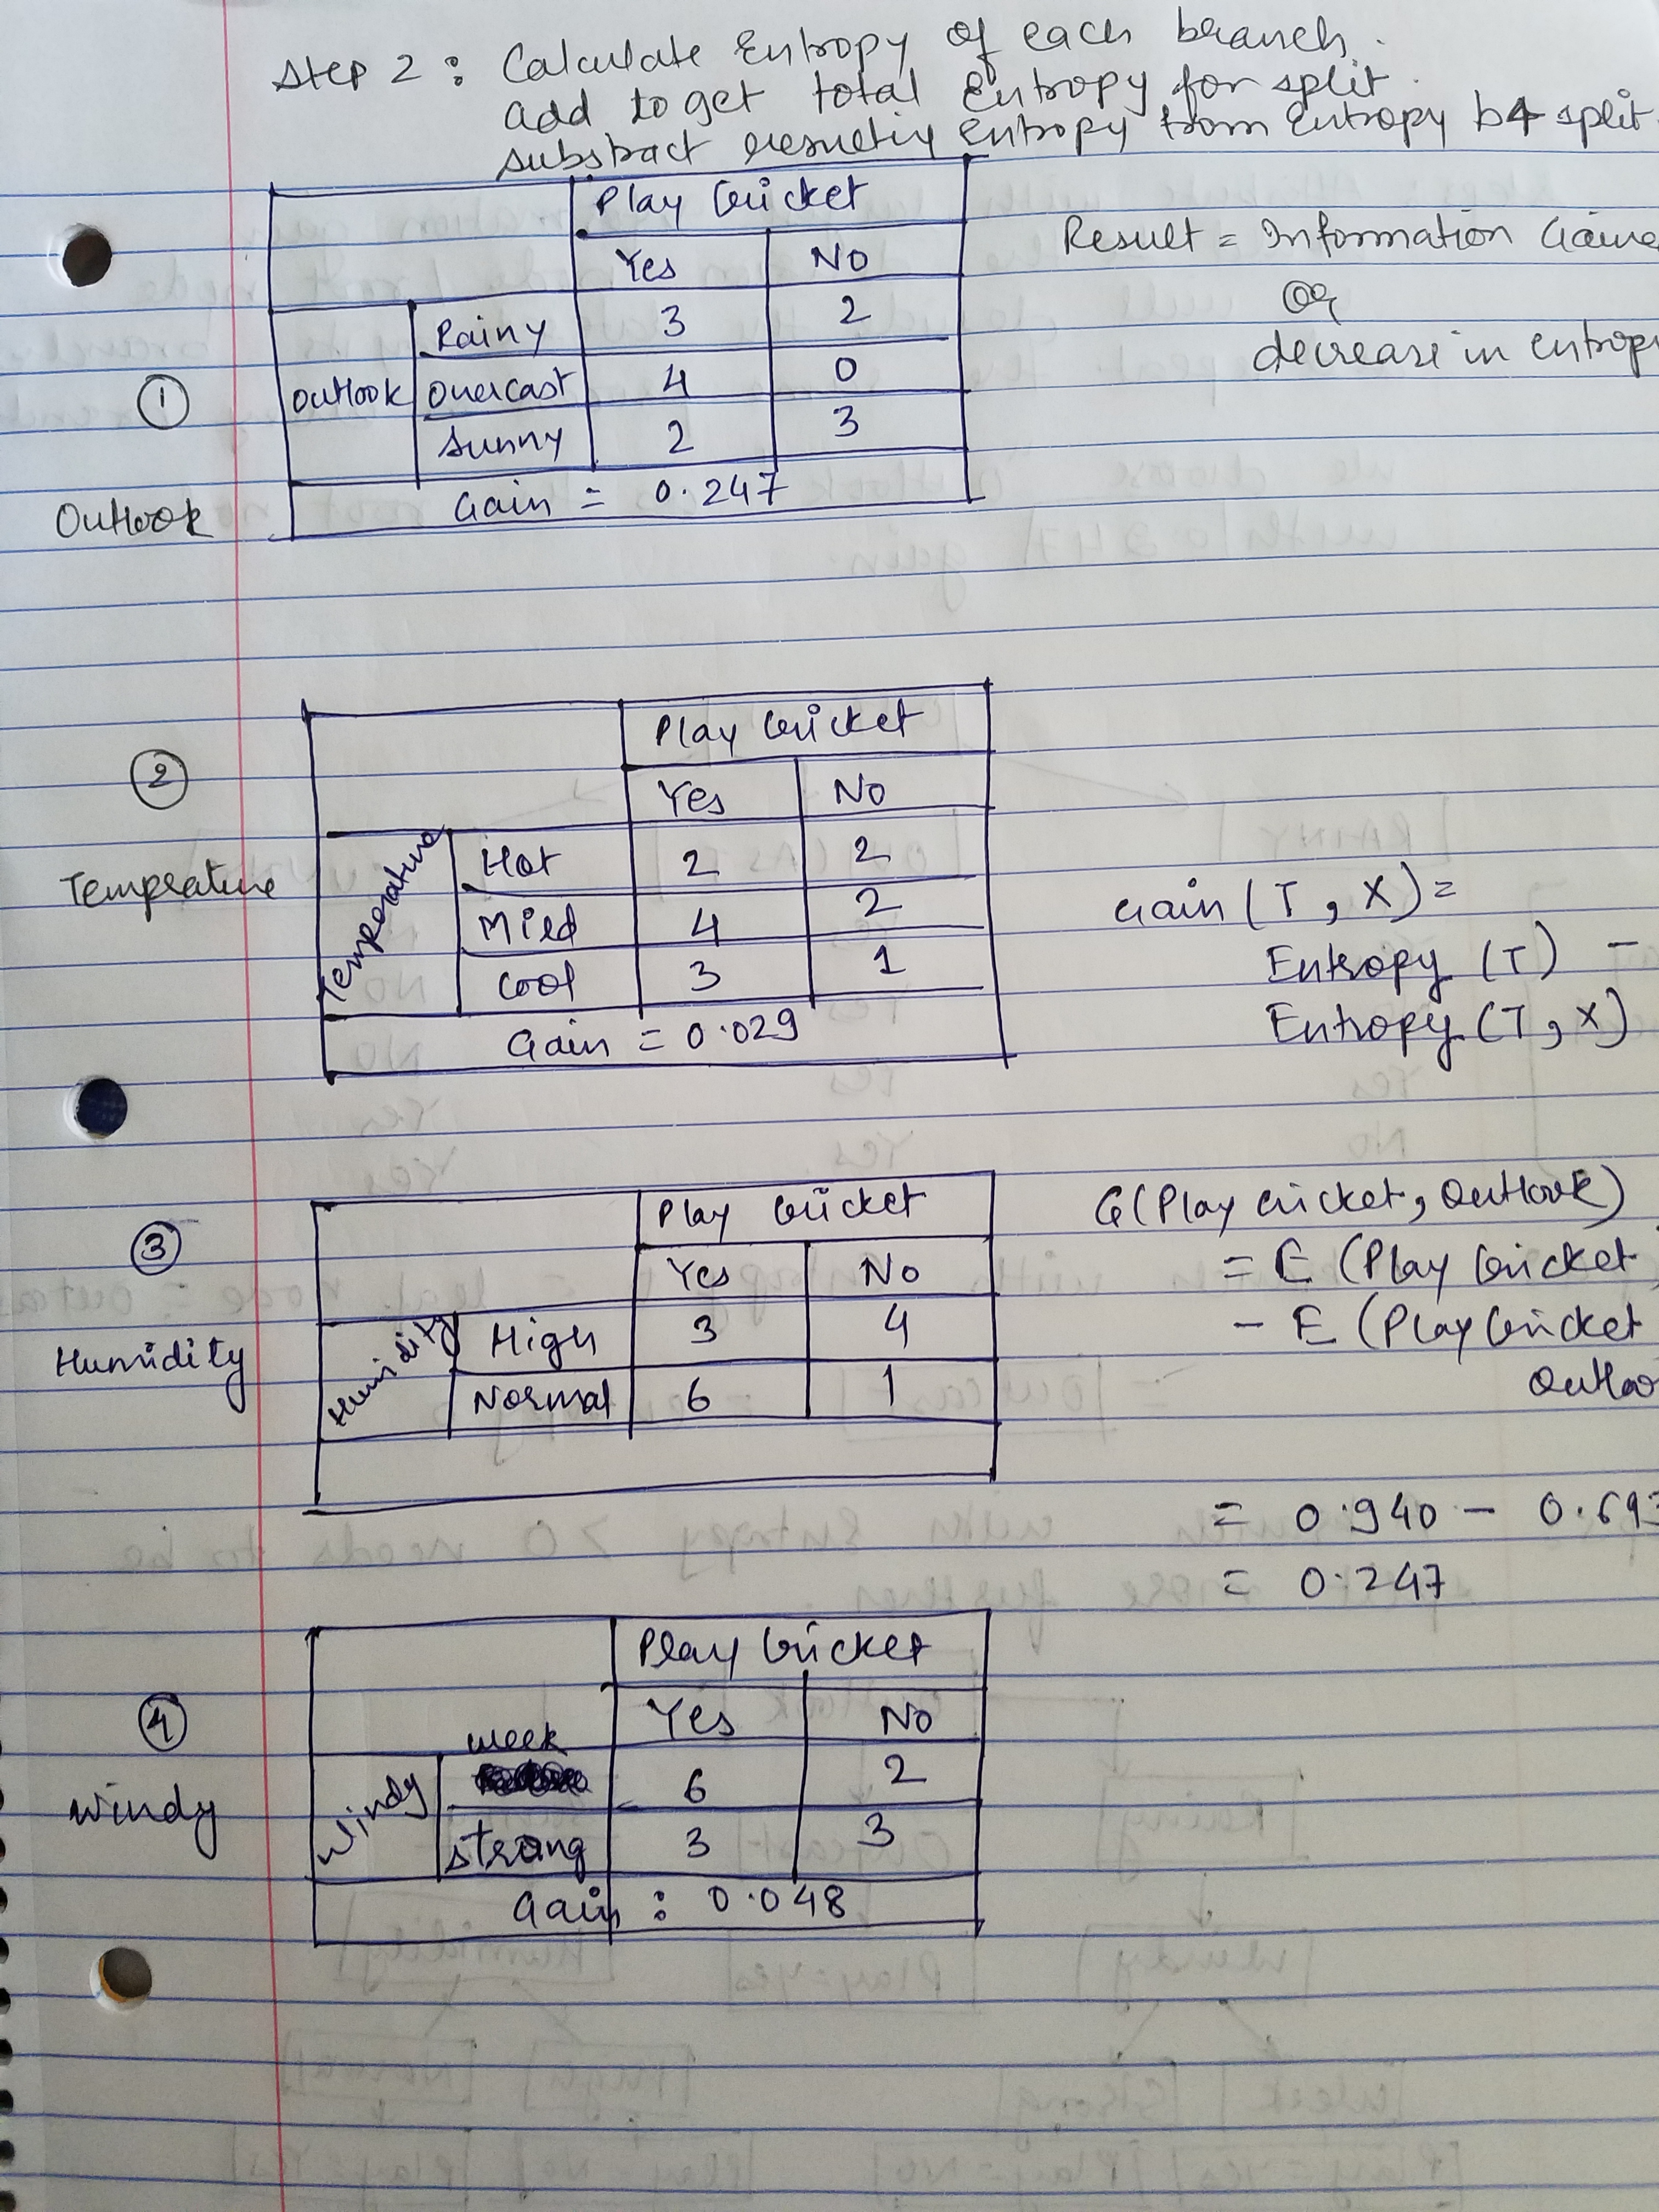 Step 2 : Calculate Entropy of each branch.
add to get total Entropy for split.
substract Entropy from Entropy b4 split
Play Cricket
Yes No
Rainy 3 2
Outlook overcast 4 0
Sunny 2 3
Gain = 0.247
①
Outlook
Result = Information Gaine
OR
decrease in entrop
②
Temprature
Play Cricket
Yes No
Temperature Hot 2 2
Mild 4 2
Cool 3 1
Gain = 0.029
Gain (T, X) =
Entropy (T) -
Entropy (T, X)
③
Humidity
Play Cricket
Yes No
Humidity High 3 4
Normal 6 1
G(Play Cricket, Outlook)
= E (Play Cricket
- E (Play Cricket
Outloo
= 0.940 - 0.693
= 0.247
④
Windy
Play Cricket
Yes No
Windy week 6 2
strong 3 3
Gain : 0.048